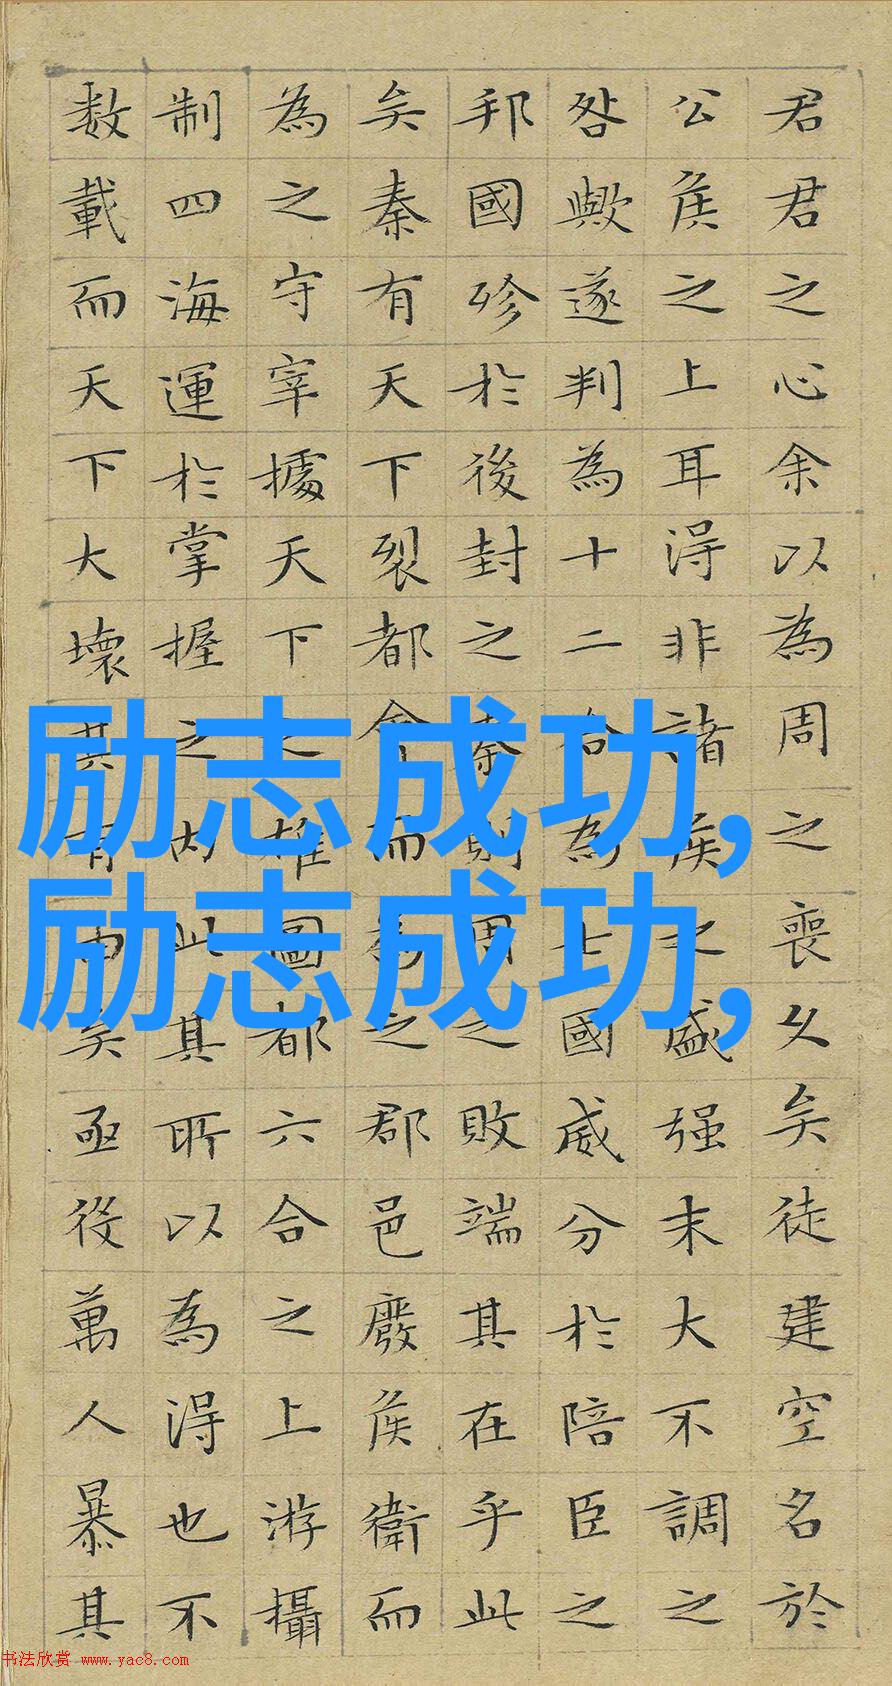 君君之心余以為周之喪久矣徒建空名於
公侯之上耳得非諸侯之盛强末大不調之
咎歟遂判為十二合為七國威分於陪臣之
邦國殄於後封之秦則周之敗端其在乎此
矣秦有天下裂都會而為之郡邑廢侯衛而
為之守宰據天下之雄圖都六合之上游攝
制四海運於掌握之内此其所以為得也不
数載而天下大壞其有由矣亟役萬人暴其
励志成功,
励志成功,
书法欣赏 www.yac8.com